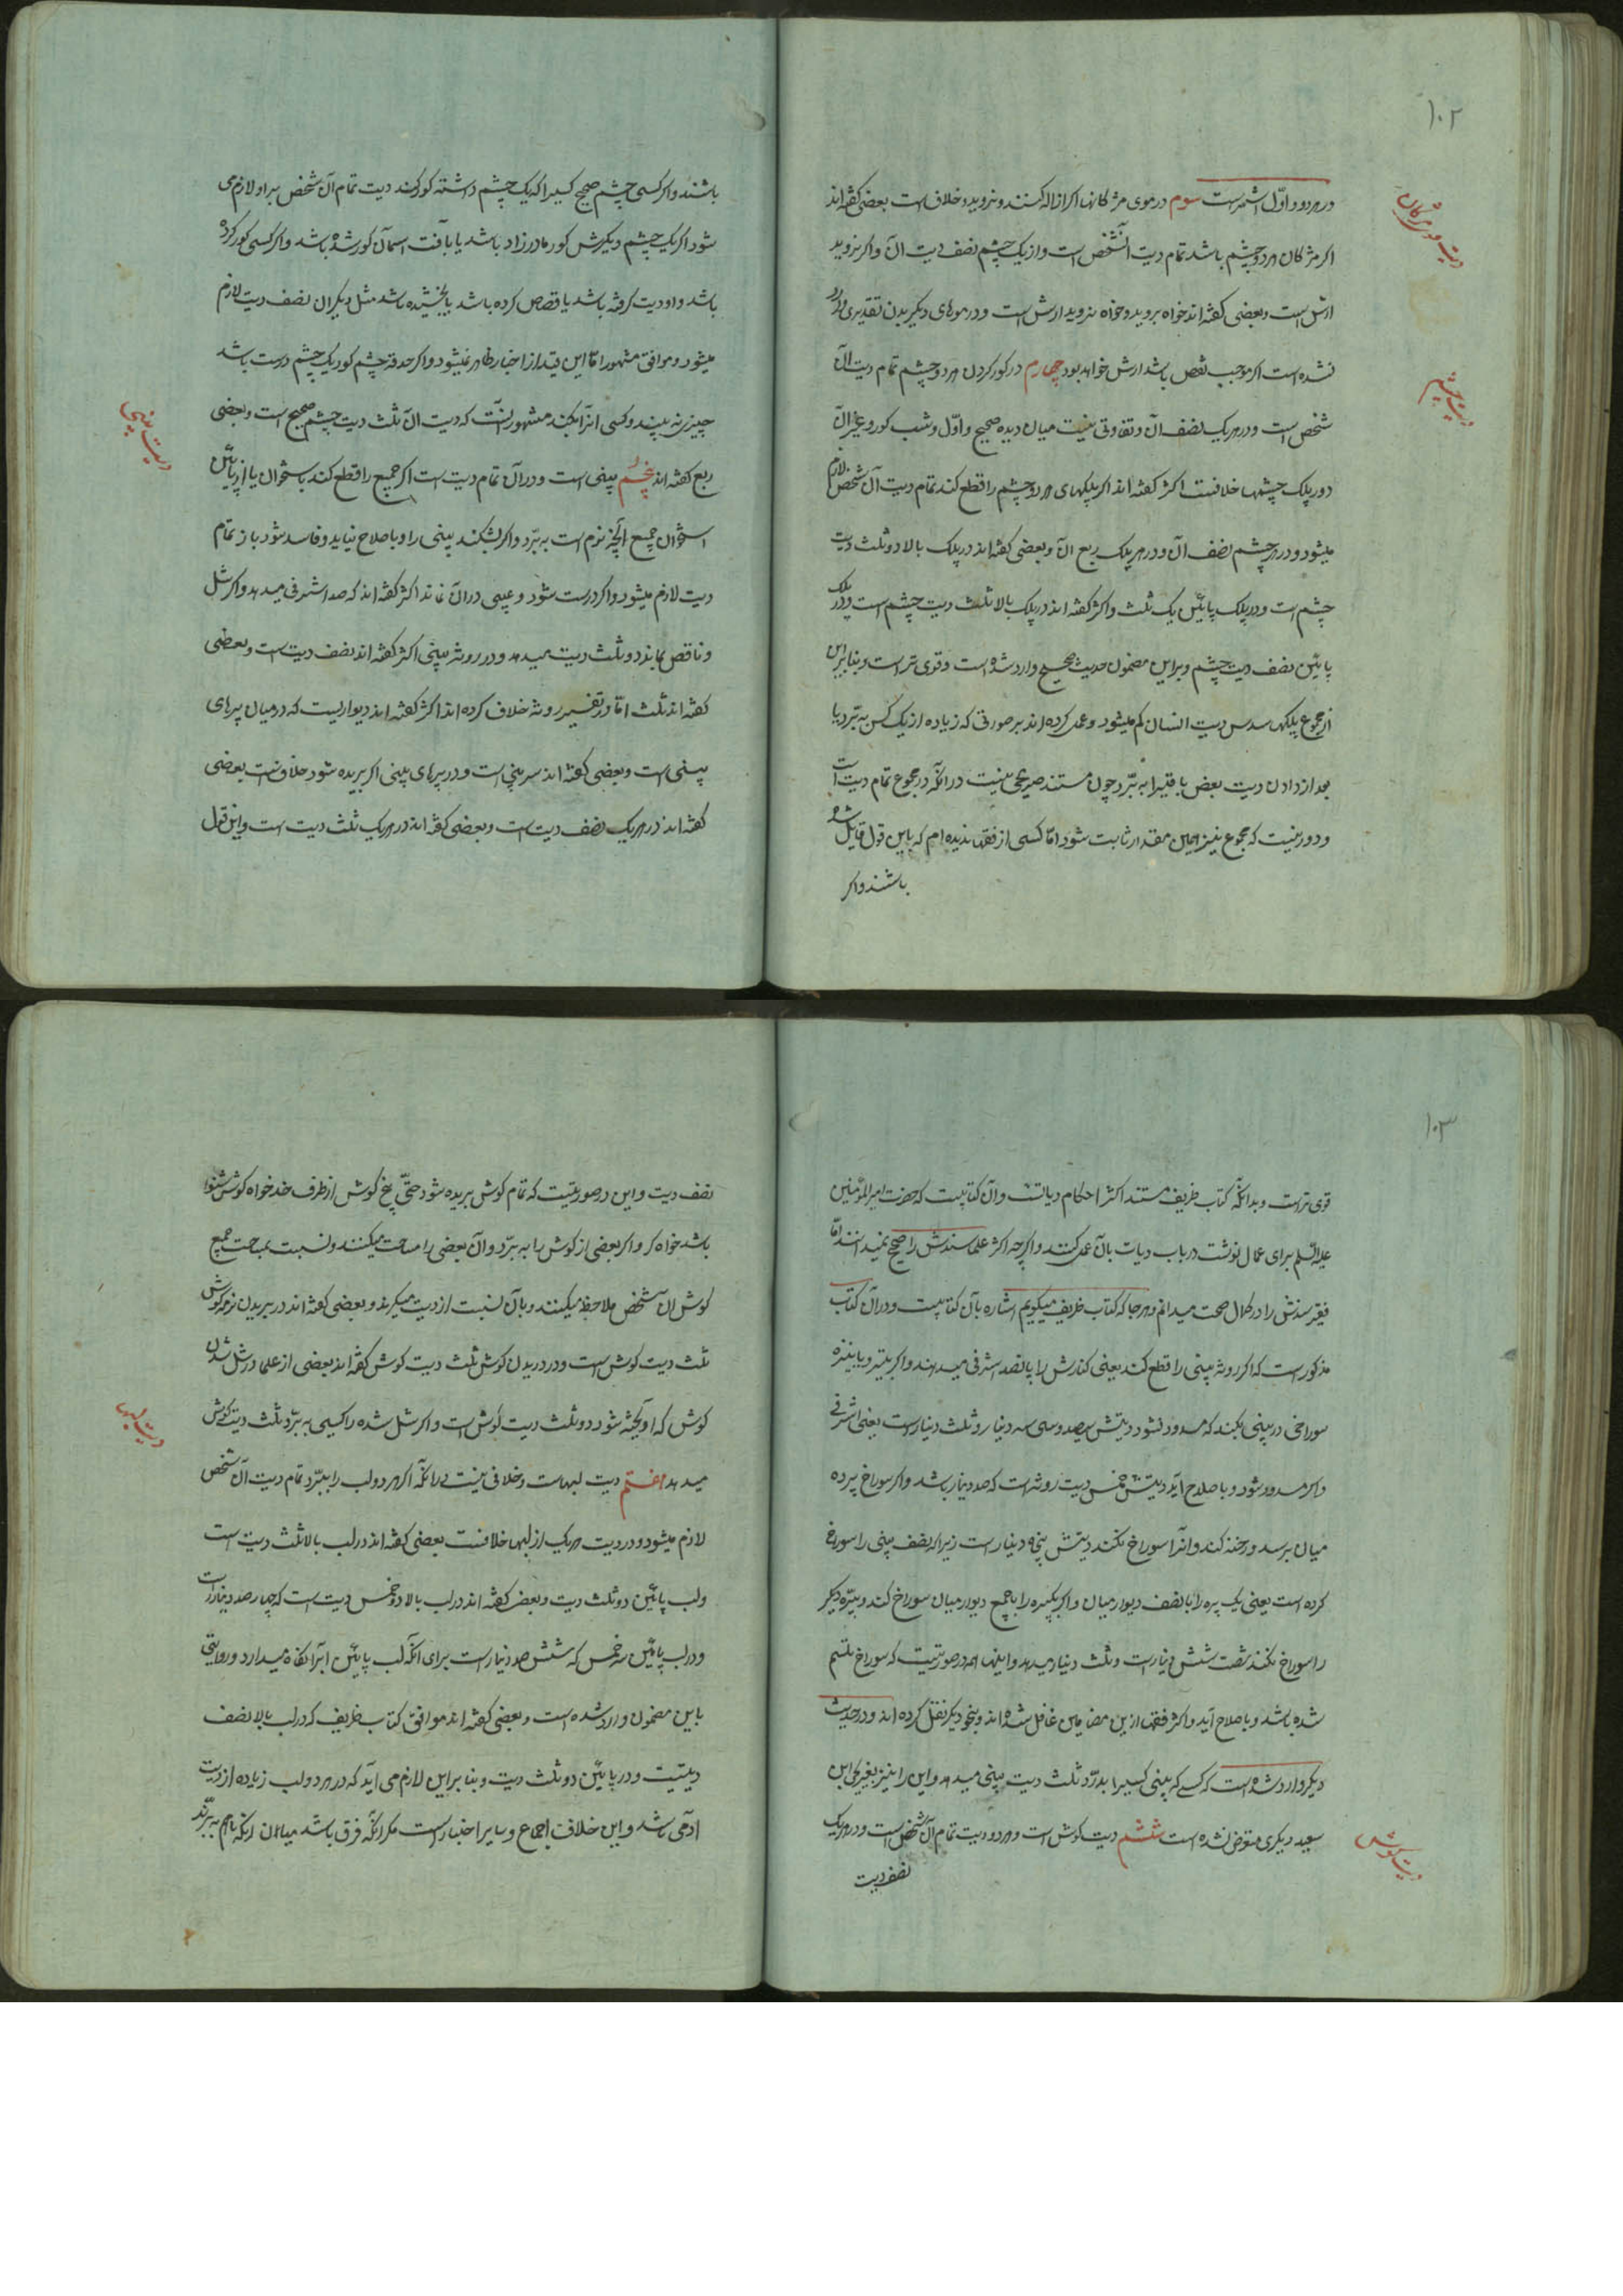 ۱۰۲
در هر دو و اوّل اشهر است سوم در موی مژگانها اگر ازاله کنند و نروید و خلاف است بعضی گفته‌اند
دیت موی مژگان
اگر مژگان هر دو چشم باشد تمام دیت آنشخص است و از یک چشم نصف دیت آن و اگر بروید
ارش است و بعضی گفته‌اند خواه بروید و خواه نروید ارش است و در موهای دیگر بدن تقدیری وارد
نشده است اگر موجب نقص باشد ارش خواهد بود چهارم در کور کردن هر دو چشم تمام دیت آن
دیت چشم
شخص است و در هر یک نصف آن و تفاوتی نیست میان دیده صحیح و احول و شب کور و غیر آن
و در پلک چشمها خلافست اکثر گفته‌اند اگر پلکهای هر دو چشم را قطع کند تمام دیت آن شخص لازم
میشود و در هر چشم نصف آن و در هر پلک ربع آن و بعضی گفته‌اند در پلک بالا دو ثلث دیت
چشم است و در پلک پائین یک ثلث و اکثر گفته‌اند در پلک بالا ثلث دیت چشم است و در پلک
پائین نصف دیت چشم و بر این مضمون حدیث صحیح وارد شده است و قوی تر است و بنابراین
از مجموع پلکها سدس دیت انسان کم میشود و عمل کرده‌اند بر صورتی که زیاده از یک کس ببرّد یا
بعد از دادن دیت بعض باقی را ببرّد چون مستند صریحی نیست در آنکه در مجموع تمام دیت است
و دور نیست که مجموع نیز همین مقدار ثابت شود امّا کسی از فقها ندیده‌ام که باین قول قایل شده
باشند و اگر
باشند و اگر کسی چشم صحیح کسیرا که یک چشم داشته کور کند دیت تمام آن شخص بر او لازم می
شود اگر یک چشم دیگرش کور مادرزاد باشد یا بآفت آسمان کور شده باشد و اگر کسی کور کرده
باشد و او دیت گرفته باشد یا قصاص کرده باشد یا بخشیده باشد مثل دیگران نصف دیت لازم
میشود و موافق مشهور امّا این قید از اخبار ظاهر نمیشود و اگر حدقه چشم کور یک چشم درست باشد
چیزی نه بیند و کسی آنرا بکند مشهور آنست که دیت آن ثلث دیت چشم صحیح است و بعضی
ربع گفته‌اند پنجم بینی است و در آن تمام دیت است اگر جمیع را قطع کند باستخوان یا از پائین
دیت بینی
استخوان جمیع آنچه نرم است ببرّد و اگر بشکند بینی را و باصلاح نیاید و فاسد شود باز تمام
دیت لازم میشود و اگر درست شود و عیبی در آن نماند اکثر گفته‌اند که صد اشرفی میدهد و اگر شل
و ناقص بماند دو ثلث دیت میدهد و در روثه بینی اکثر گفته‌اند نصف دیت است و بعضی
گفته‌اند ثلث امّا در تفسیر روثه خلاف کرده‌اند اکثر گفته‌اند دیواریست که در میان پره‌های
بینی است و بعضی گفته‌اند سر بینی است و در پره‌های بینی اگر بریده شود خلافست بعضی
گفته‌اند در هر یک نصف دیت است و بعضی گفته‌اند در هر یک ثلث دیت است و این قول
۱۰۳
قوی تر است و بدانکه کتاب ظریف مستند اکثر احکام دیاتست و آن کتابیست که حضرت امیر المؤمنین
علیه السّلم برای عمال نوشت در باب دیات بآن عمل کنند و اگرچه اکثر علما سندش را صحیح نمیدانند امّا
فقیر سندش را در کمال صحت میدانم و هر جا که کتاب ظریف میگویم اشاره بآن کتابیست و در آن کتاب
مذکور است که اگر روثه بینی را قطع کند یعنی کنارش را پانصد اشرفی میدهند و اگر بتیر و یا بنیزه
سوراخی در بینی بکند که مسدود نشود دیتش سیصد و سی و سه دینار و ثلث دینار است یعنی اشرفی
و اگر مسدود شود و باصلاح آید دیتش خمس دیت روثه است که صد دینار باشد و اگر سوراخ پرده
میان برسد و رخنه کند و آنرا سوراخ نکند دیتش پنجاه دینار است زیرا که نصف بینی را سوراخ
کرده است یعنی یک پره را با نصف دیوار میان و اگر یکپره را با جمیع دیوار میان سوراخ کند و پرّه دیگر
را سوراخ نکند شصت شش دینار است و ثلث دینار میدهد و اینها همه در صورتیست که سوراخ ملتئم
شده باشد و باصلاح آید و اکثر فقها از این مضامین غافل شده‌اند و بنحو دیگر نقل کرده‌اند و در حدیث
دیگر وارد شده است که کسی که بینی کسیرا بدرّد ثلث دیت بینی میدهد و این را نیز بغیر یحیی ابن
سعید دیگری متعرض نشده است ششم دیت گوش است و هر دو دیت تمام آن شخص است و در هر یک
دیت گوش
نصف دیت
نصف دیت و این در صورتیست که تمام گوش بریده شود حتّی بیخ گوش از طرف خد خواه گوش شنوا
باشد خواه کر و اگر بعضی از گوش را ببرّد و آن بعضی را مساحت میکنند و نسبت بمساحت جمیع
گوش آن شخص ملاحظه میکنند و بآن نسبت از دیت میگیرند و بعضی گفته‌اند در بریدن نرمه گوش
ثلث دیت گوش است و در دریدن گوش ثلث دیت گوش گفته‌اند بعضی از علما در شل شدن
گوش که آویخته شود دو ثلث دیت گوش است و اگر شل شده را کسی ببرّد ثلث دیت گوش
دیت لبها
میدهد هفتم دیت لبهاست و خلافی نیست در آنکه اگر هر دو لب را ببرّد تمام دیت آن شخص
لازم میشود و در دیت هر یک از لبها خلافست بعضی گفته‌اند در لب بالا ثلث دیت است
و لب پائین دو ثلث دیت و بعضی گفته‌اند در لب بالا دو خمس دیت است که چهار صد دینار است
و در لب پائین سه خمس که ششصد دینار است برای آنکه لب پائین آبرا نگاه میدارد و روایتی
باین مضمون وارد شده است و بعضی گفته‌اند موافق کتاب ظریف که در لب بالا نصف
دیتست و در پائین دو ثلث دیت و بنابراین لازم می‌آید که در هر دو لب زیاده از دیت
آدمی باشد و این خلاف اجماع و سایر اخبار است مگر آنکه فرق باشد میان آنکه با هم ببرّند